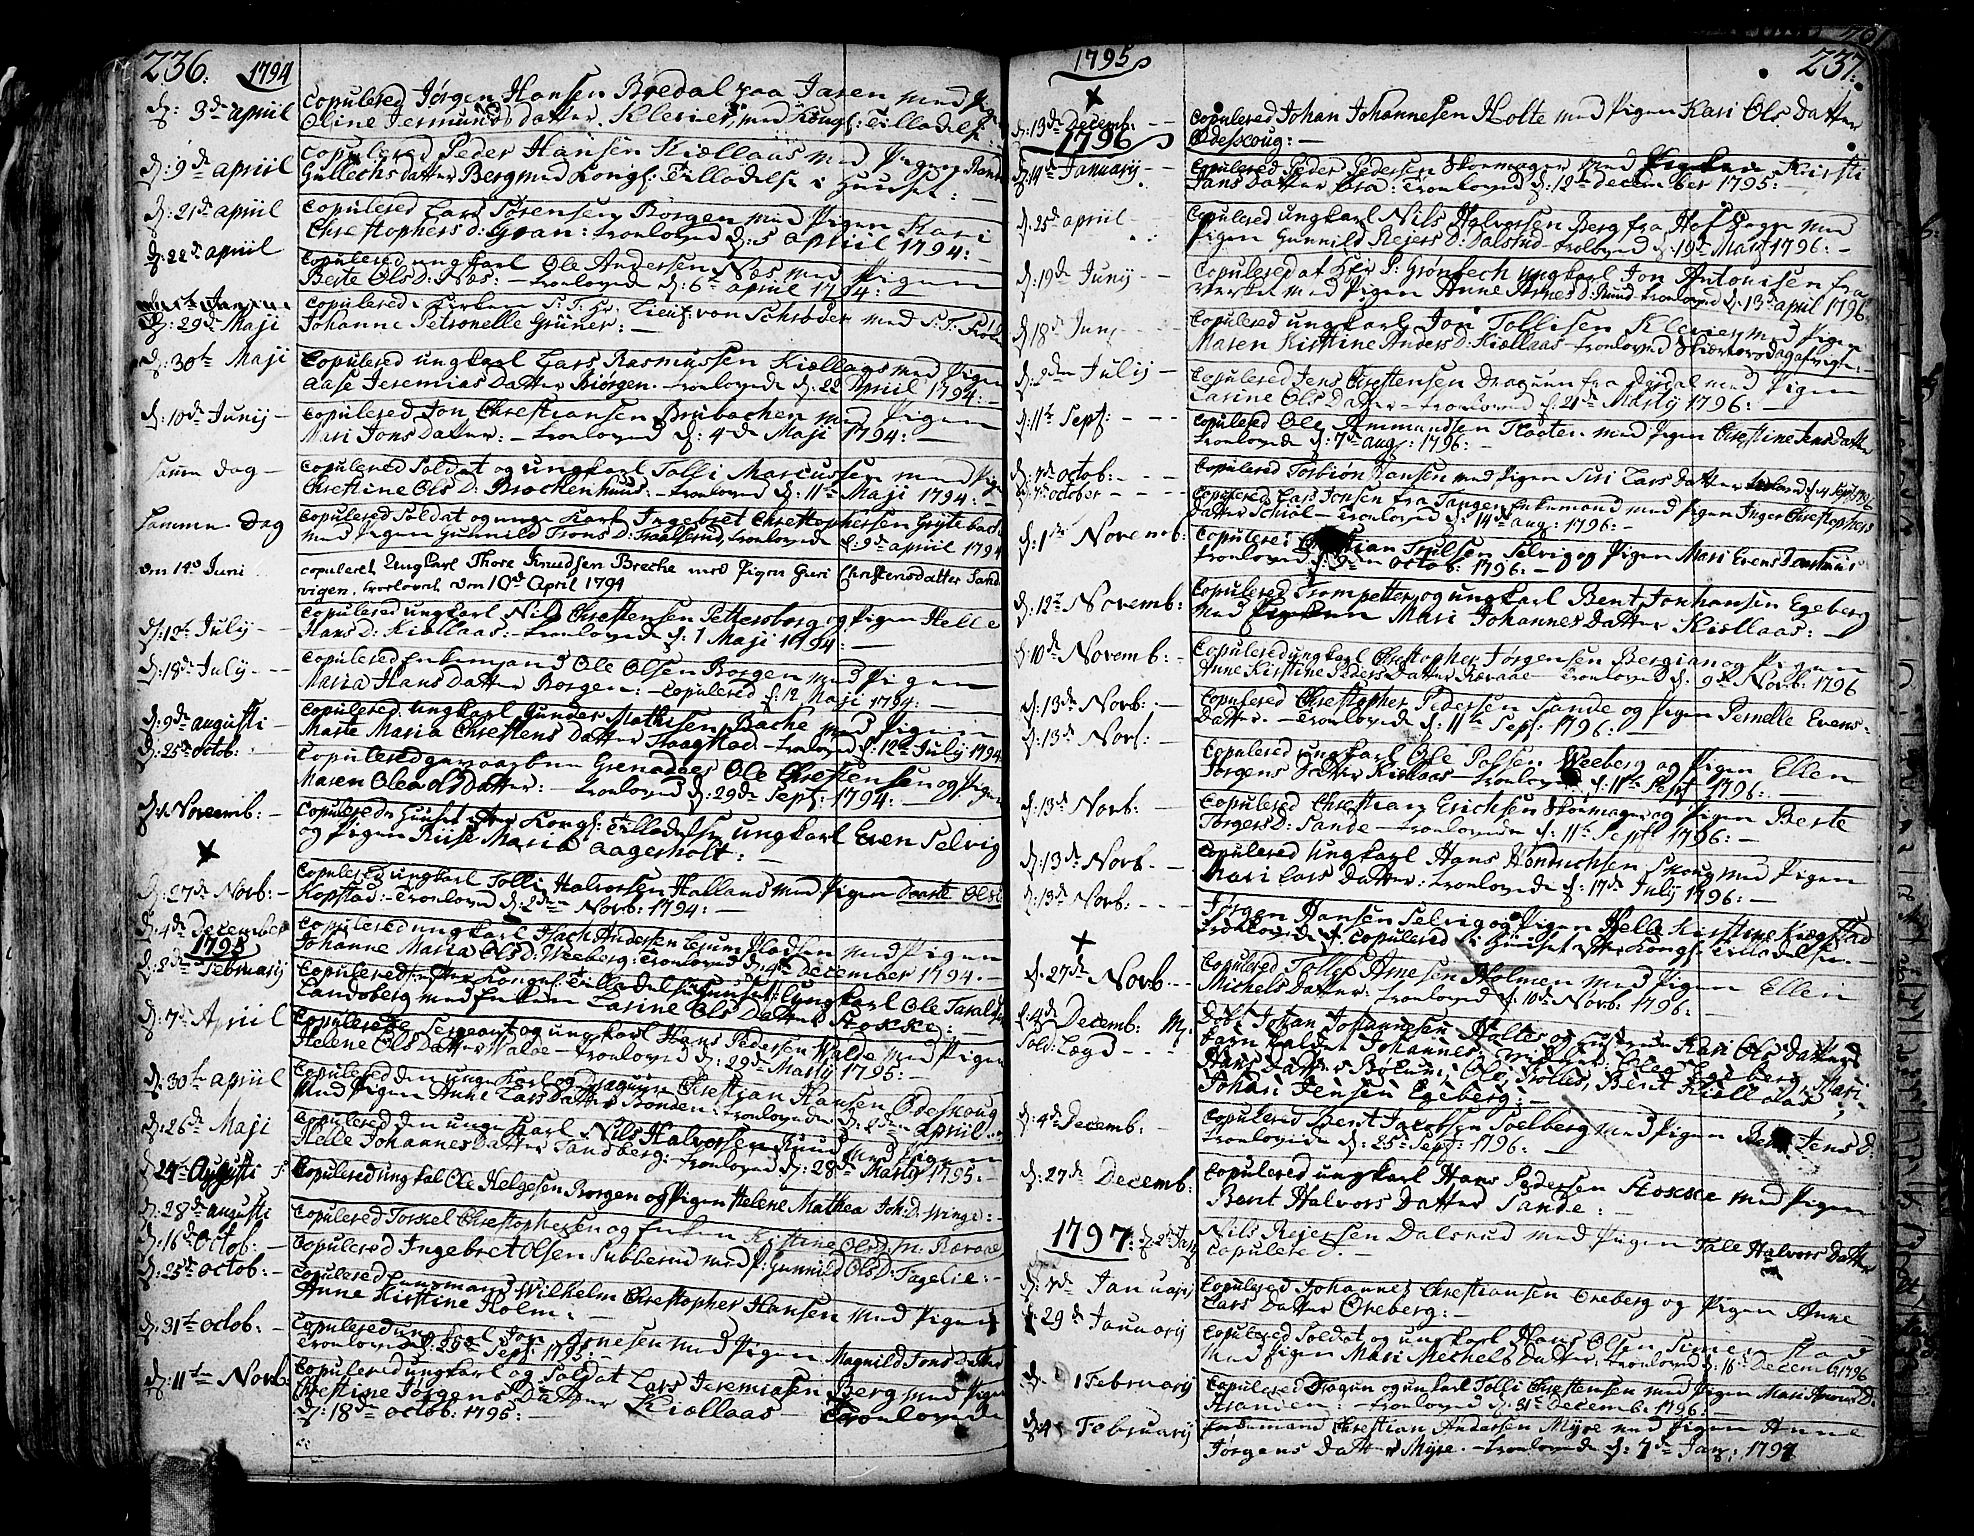 236: 1794
d: 3de apriil Copulered Jørgen Hansen Bredal paa Jaren med Pigen
Oline Jermunds datter Klevier, med Kongl: Tilladelse:
d: 9de apriil Copulered Peder Hansen Kiøllaas med Pigen Rand
Gullechs datter Berg med Kongl: Tilladelse i Huuset: —
d: 21de apriil Copulered Lars Sørensen Borgen med Pigen Kari
Chrestophers d: Gran: tronloved d: 5 apriil 1794: —
d: 22de apriil Copulered ungkarl Ole Andersen Nøs med Pigen
Berte Ols D: Nøs: — tronloved d: 6te april 1794:
d: 29de Maji Copulered i Kirken S: T: Hr: Lieut: von Schrøder med S: T: Frøk
Johanne Petronelle Grüner: —
d: 30te Maji Copulered ungkarl Lars Rasmussen Kiøllaas med Pigen
Aase Jeremias Datter Biørgen. — tronloved d: 22 Apriil 1794: —
d: 10de Junij — Copulered Jon Chrestiansen Brubachen med Pigen
Mari Jons Datter: — tronloved d: 4de Maji 1794: —
samme Dag — Copulered Soldat og ungkarl Tolli Marcussen med Pige
Chrestine Ols D: Brochenhuus: — tronloved d: 11te Maji 1794: —
sammen Dag Copulered Soldat og unge Karl Ingebret Chrestophersen Grytebach
med Pigen Gunnild Trons D: tronlovede d: 9de apriil 1794
den 14de Juni copuleret Ung Karl Thore Knudsen Breche med Pigen Guri Christensdatter Sand
vigen, troelovet den 10de April 1794
d: 12te July — Copulered ungkarl Nils Chrestensen Pettersborg og Pigen Helle
Hans D: Kiøllaas: — tronlovede d: 1 Maji 1794: —
d: 18de July — Copulered Enkemand Ole Olsen Borgen med Pigen
Maria Hans Datter Borgen: — Copulered d: 12 Maji 1794: —
d: 9de augusti — Copulered ungkarl Gunder Mathisen Bache med Pigen
Marte Maria Chrestens Datter Haagstad — tronloved d: 12te July 1794
d: 25de octob: Copulered Grenadeer Ole Chrestensen og Pige
Maren Ole Datter: — tronloved d: 29de Sept: 1794: —
Novemb: — Copulered i Huuset efter Kongl: Tilladelse ungkarl Even Selvig
og Pigen Riise Maria Aagerholt: —
d: 27de Novb: — Copulered ungkarl Tolli Halvorsen Halland med Pigen Dorte Ols D
Kopstad: — tronloved d: 2den Novb: 1794: —
d: 4de December Copulered ungkarl Isach Andersen med Pigen
Johanne Maria Ols D: Weeberg: tronloved d: 4de December 1794. —
1795
d: 2den Februarij Copulered efter Kongel: Tilladelse i Huuset: ungkarl Ole Taralds
Landsberg med Enken Larine Ols Datter Stokke:
d: 7de April Copulered Sergeant og ungkarl Hans Pedersen Walde med Pigen
Helene Ols Datter Walde — tronloved d: 29de Martij 1795: —
d: 30te apriil Copulered den unge Karl og Dragun Chrestian Hansen Ødeskoug
med Pigen Anne Lars Datter Bonden: tronlovede d: 2den apriil
d: 26de Maji Copulered den unge Karl Nils Halvorsen Ruud med Pigen
Helle Johannes Datter Sandberg: tronloved d: 28de Martij 1795: —
24de Augusti Copulered ungkal Ole Helgesen Borgen og Pigen Helene Mathea Joh: D: Winge: —
d: 28de augusti Copulered Torkel Chrestophersen og Enken Kirstine Ols d: M: Ræraae
d: 16de Octob: — Copulered Ingebret Olsen Subberud med P: Gunnild Ols D: Fagelie: —
d: 25de octob: — Copulered Landsmand Wilhelm Chrestopher Hansen med Pigen
Anne Kirstine Holm: —
d: 31te octob: — Copulered ungkarl Jon Arnesen med Pigen Magnild Jons Datter
tronloved d: 29de Sept: 1795: —
d: 11te Novb: Copulered ungkarl og Soldat Lars Jeremiasen Berg med Pige
Chrestine Jørgens Datter Kiøllaas — tronlovede
d: 18de octob: 1795: —
1795 237:
d: 13de Decemb: — Copulered Johan Johannesen Holte med Pigen Kari Ols Datter
Ødeskoug: —
1796
d: 14de Januarij — Copulered Peder Pedersen Skomager med Kirsti
Jans Datter tronloved d: 12te december 1795: —
d: 25de apriil — Copulered ungkarl Nils Halvorsen Berg fra Hof Sogn med
Pigen Gunnild Rejers D: Dalsrud — troloved d: 19de Martz 1796: —
d: 19de Junij Copulered af Hr: P: Grønbech ungkarl Jon Antonisen fra
Verket med Pigen Anne Arnes D: Ruud tronloved d: 13de april 1796:
d: 18de Juny — Copulered ungkarl Jon Tollisen Klevier med Pigen
Maren Kirstine Anders D: Kiøllaas — tronloved
d: 2den Julij — Copulered Jens Chrestensen Draguun fra med Pigen
Larine Ols Datter — tronloved d: 21de Martij 1796: —
d: 11te Sept: — Copulered Ole Ammundsen Flaaten med Pigen Chrestine Jens Datter
tronlovede d: 7de aug: 1796: —
d: 2de octob: — Copulered Torbiørn Hansen med Pigen Siri Lars Datter tronloved d: 4 Sept: 1796
7de october — Copulered Lars Jonsen fra Tangen Enkemand med Pigen Inger Chrestophers
Datter Schiøl — tronloved d: 14de aug: 1796: —
d: 1te Novemb: Copulered Chrestian Trulsen Selvig og Pigen Mari Evens Datter
tronlovede d: 9den Octob: 1796: —
d: 12te Novemb: Copulered Trompetter og ungkarl Bent Johansen Egeberg
med Mari Johannes Datter Kiøllaas: —
d: 10de Novemb: — Copulered ungkarl Chrestopher Jørgensen Bergian og Pigen
Anne Kirstine Peders Datter Ræraae — tronloved d: 9de Novb: 1796
d: 13de Novb: — Copulered Chrestopher Pedersen Sande og Pigen Pernelle Evens
Datter. — tronloved d: 11te Sept: 1796: —
d: 13de Novb: — Copulered ungkarl Ole Palsen Weeberg og Pigen Ellen
Jørgens Datter Kiøllaas — tronloved d: 11te Sept: 1796: —
d: 13de Novb: — Copulered Chrestian Erichsen Skomager og Pigen Berte
Torgers D: Sande — tronlovede d: 11te Sept: 1796: —
d: 13de Novb. — Copulered ungkarl Hans Hendrichsen Skoug med Pigen
Mari Lars Datter: tronlovede d: 17de Julij 1796: —
d: 13de Novb: — Jørgen Hansen Selvig og Pigen Helle Kirstine Krogstad
copulered i Huuset efter Kongl: Tilladelse: —
d: 27de Novb: — Copulered Tollef Arnesen Holmen med Pigen Ellen
Michels Datter: tronloved d: 10de Novb: 1796: —
d: 4de Decemb: døbt Johan Johannesen Holtes og Hustrue Kari Ols Datters
Sold: Lægd — barn kaldet Johannes, Egeberg, Mari
Hans Datter Ole Tolles, Berit Kiøllaas,
Johan Jensen Egeberg: —
d: 4de Decemb: — Copulered Bent Jacobsen Solberg med Pigen Jens D:
tronlovede d: 25de Sept: 1796. —
d: 27de Decemb: Copulered ungkarl Hans Pedersen Stokke med Pigen
Bent Halvors Datter Sande: —
1797: d: 2de Jan Nils Rejersen Dalsrud med Pigen Tale Halvors Datter
copulered: —
d: 2de Januarij Copulered Johannes Chrestiansen Oreberg og Pigen Anne
Lars Datter Oreberg: —
d: 29de Januarij Copulered Soldat og ungkarl Hans Olsen
med Pigen Mari Mechels Datter, tronloved d: 16de Decemb: 1796
d: 1 Februarij Copulered Dragun og unkarl Tolli Chrestensen med Pigen Mari D:
Stranden: — tronloved d: 31te Decemb: 1796: —
d: 4 Februarij Enkemand Chrestian Andersen Myre med Pigen Anne
Jørgens Datter Myre. — tronlovede d: 7de Jan: 1797